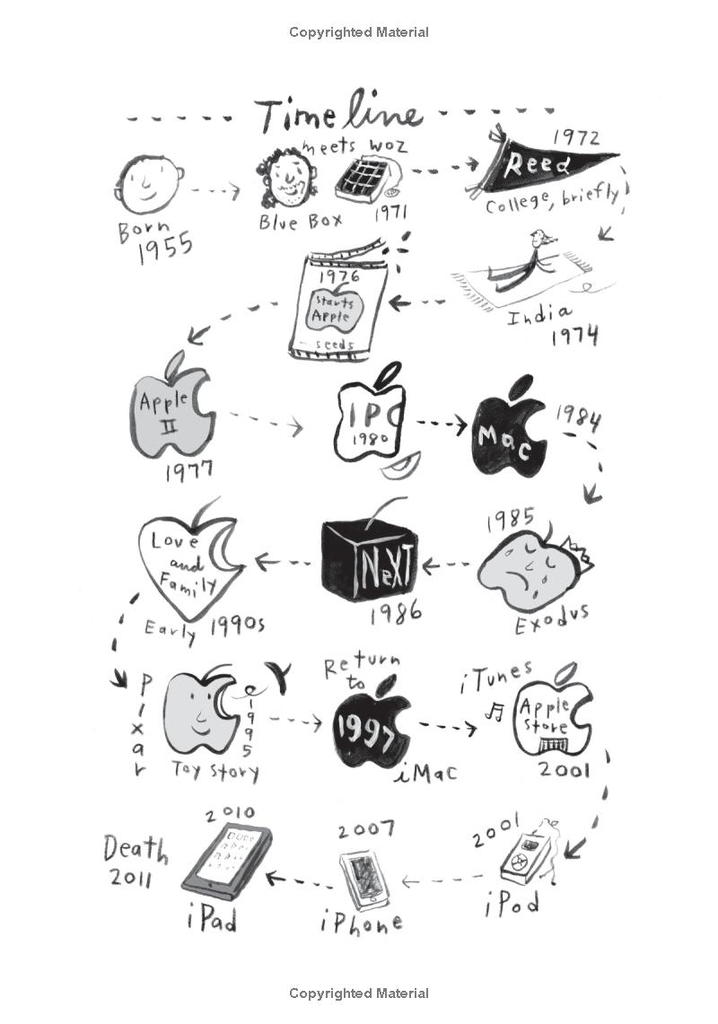 Copyrighted Material
Timeline
Born
1955
meets woz
Blue Box
1971
1972
Reed
College, briefly
India
1974
1976
Starts
Apple
seeds
Apple
II
1977
IPO
1980
Mac
1984
1985
Exodus
NeXT
1986
Love
and
Family
Early 1990s
Pixar
1995
Toy Story
Return
to
1997
iMac
iTunes
Apple
Store
2001
2001
iPod
2007
iPhone
2010
iPad
Death
2011
Copyrighted Material